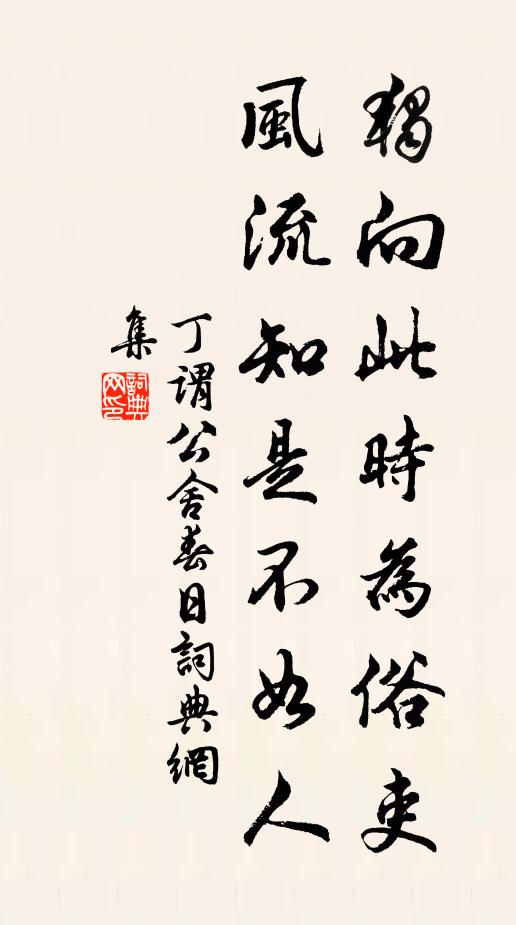 獨向此時為俗吏
風流知是不如人
丁謂公舍春日詞典網
集
詞典网印